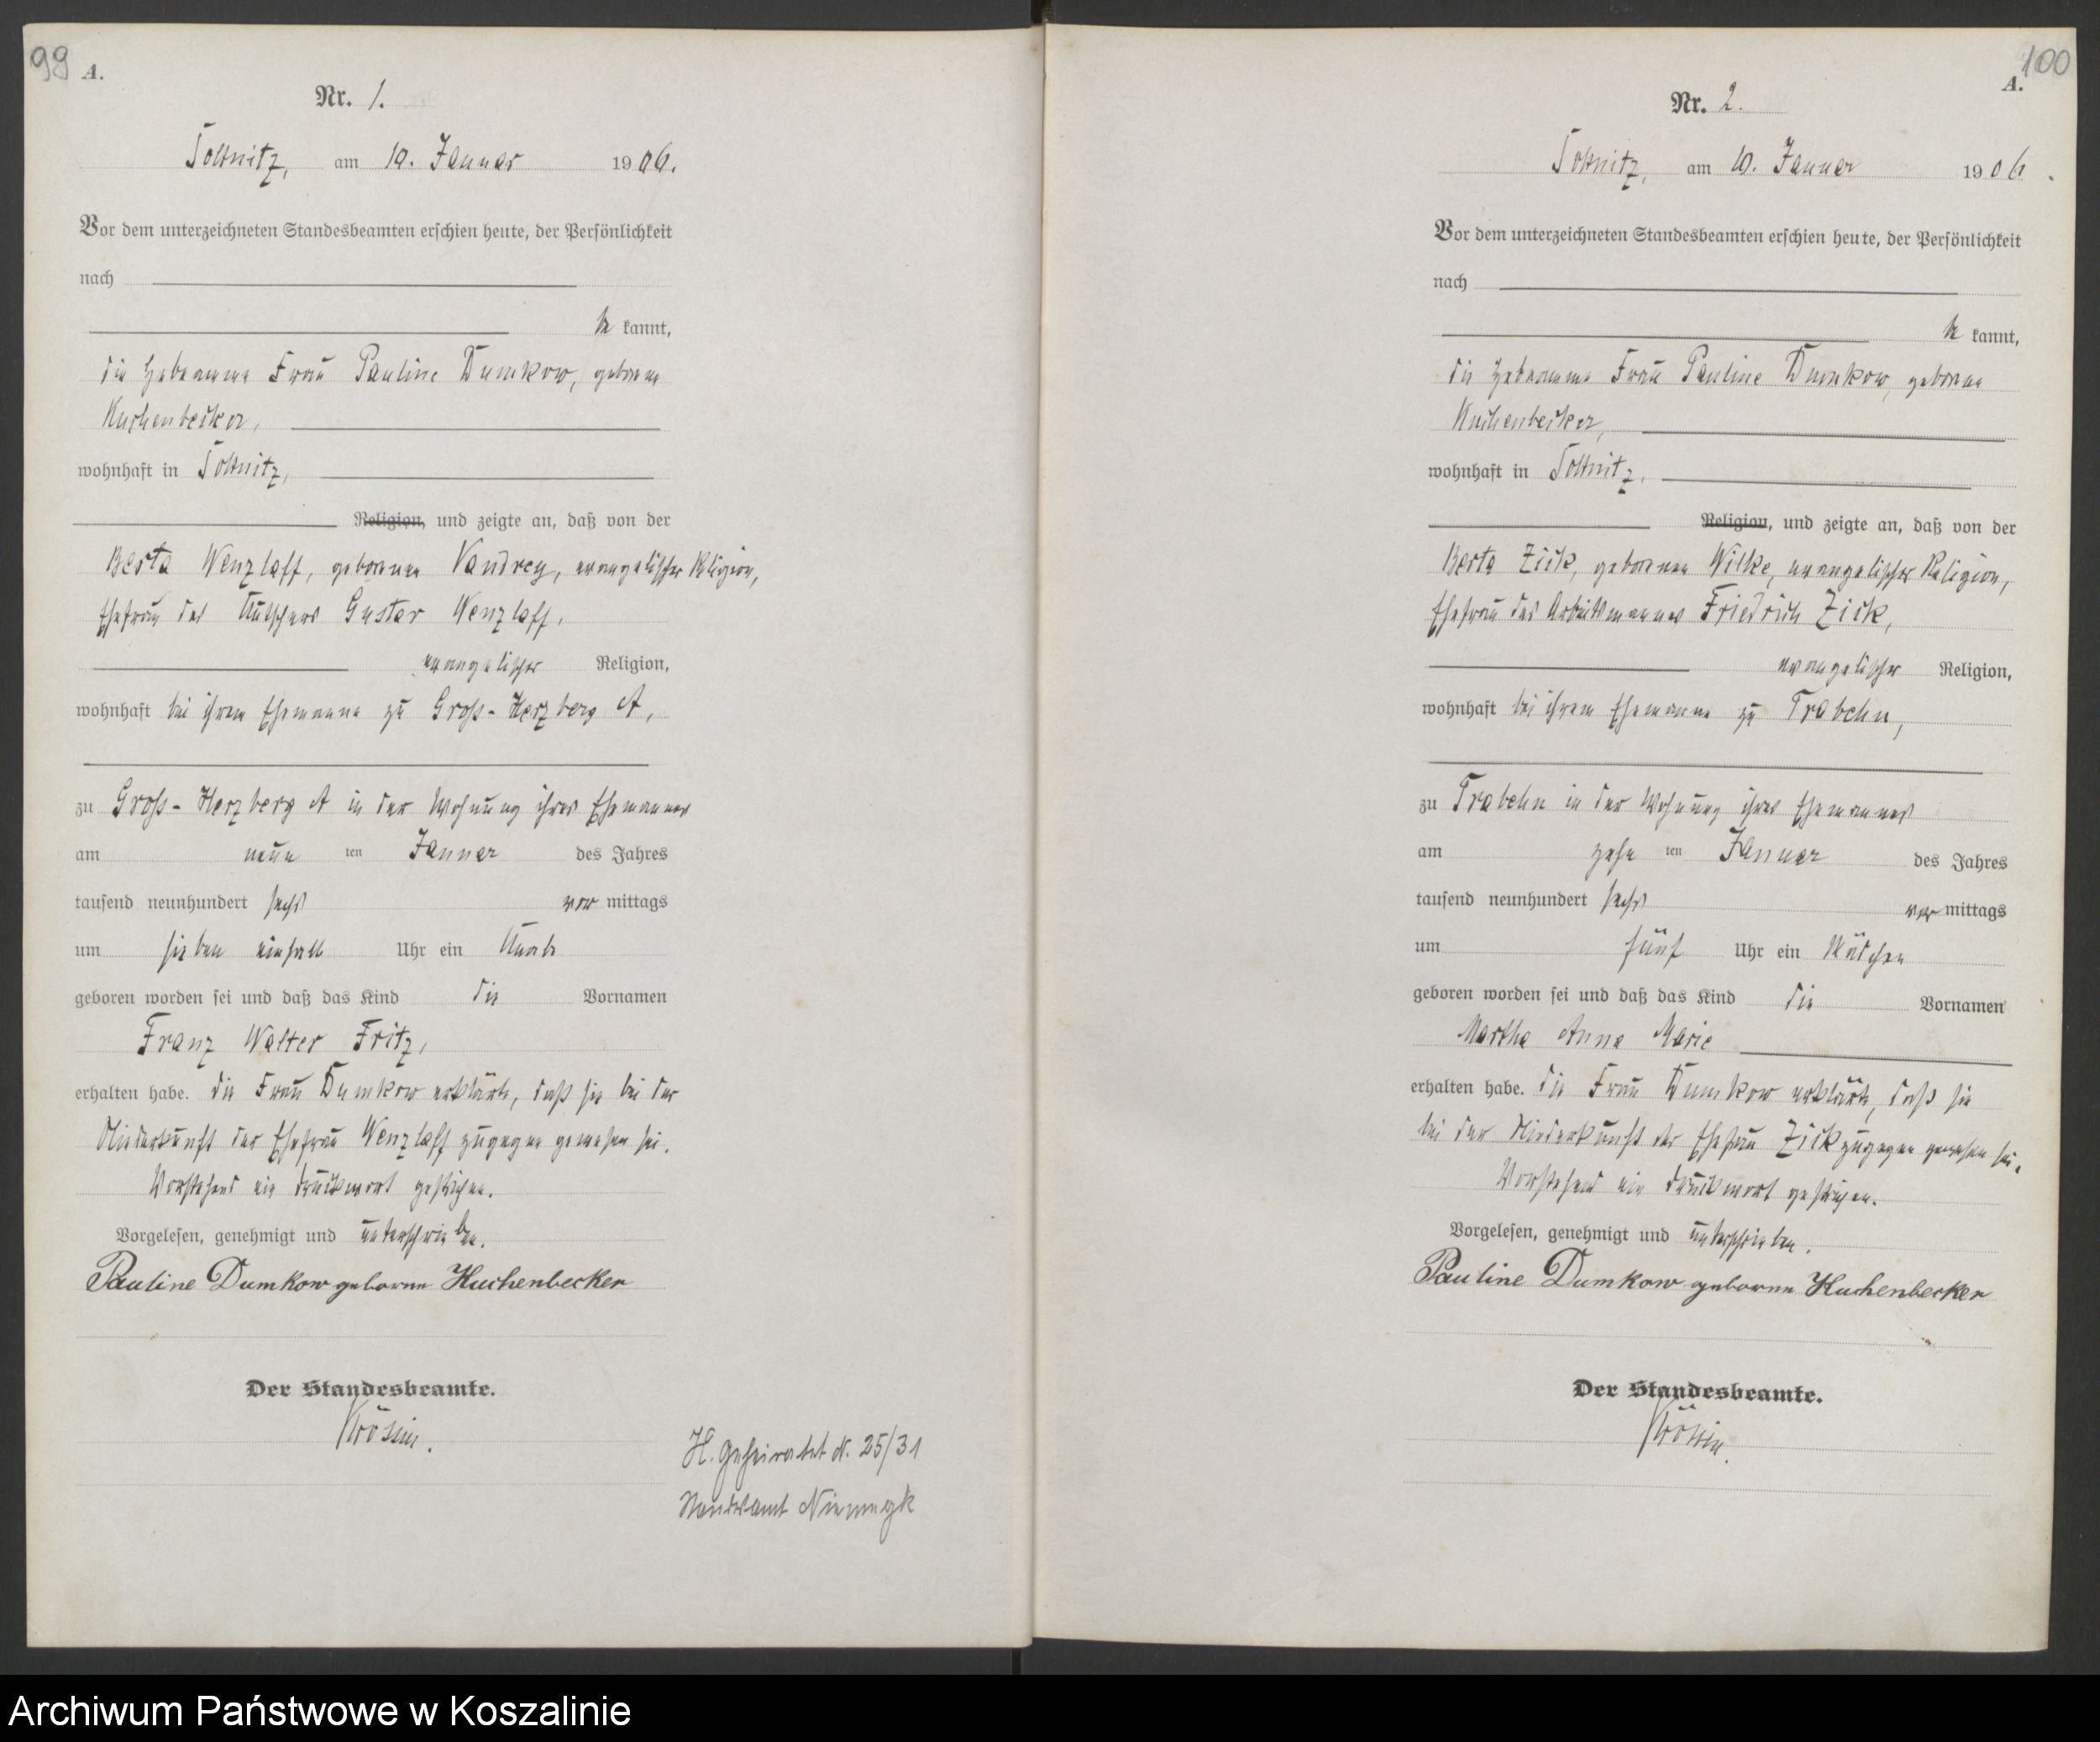 99
A.
Nr. 1.
Soltnitz, am 10. Januar 1906.
Vor dem unterzeichneten Standesbeamten erschien heute, der Persönlichkeit
nach
be kannt,
die Hebamme Frau Pauline Dumkow, geborene
Kuchenbecker,
wohnhaft in Soltnitz,
Religion, und zeigte an, daß von der
Berta Wenzlaff, geborenen Vandrey, evangelischer Religion,
Ehefrau des Kutschers Gustav Wenzlaff,
evangelischer Religion,
wohnhaft bei ihrem Ehemanne zu Groß-Herzberg A,
zu Groß-Herzberg A in der Wohnung ihres Ehemannes
am neun ten Januar des Jahres
tausend neunhundert sechs vor mittags
um sieben einhalb Uhr ein Knabe
geboren worden sei und daß das Kind die Vornamen
Franz Walter Fritz,
erhalten habe. Die Frau Dumkow erklärte, daß sie bei der
Niederkunft der Ehefrau Wenzlaff zugegen gewesen sei.
Vorstehend ein Druckwort gestrichen.
Vorgelesen, genehmigt und unterschrieben.
Pauline Dumkow geborne Kuchenbecker
Der Standesbeamte.
Krösin.
H. Geheiratet N. 25/31
Standesamt Niemegk
100
A.
Nr. 2.
Soltnitz, am 10. Januar 1906.
Vor dem unterzeichneten Standesbeamten erschien heute, der Persönlichkeit
nach
be kannt,
die Hebamme Frau Pauline Dumkow, geborene
Kuchenbecker,
wohnhaft in Soltnitz,
Religion, und zeigte an, daß von der
Berta Zick, geborenen Wilke, evangelischer Religion,
Ehefrau des Arbeitsmannes Friedrich Zick,
evangelischer Religion,
wohnhaft bei ihrem Ehemanne zu Trabehn,
zu Trabehn in der Wohnung ihres Ehemannes
am zehn ten Januar des Jahres
tausend neunhundert sechs vor mittags
um fünf Uhr ein Mädchen
geboren worden sei und daß das Kind die Vornamen
Martha Anna Marie
erhalten habe. Die Frau Dumkow erklärte, daß sie
bei der Niederkunft der Ehefrau Zick zugegen gewesen sei.
Vorstehend ein Druckwort gestrichen.
Vorgelesen, genehmigt und unterschrieben.
Pauline Dumkow geborne Kuchenbecker
Der Standesbeamte.
Krösin.
Archiwum Państwowe w Koszalinie